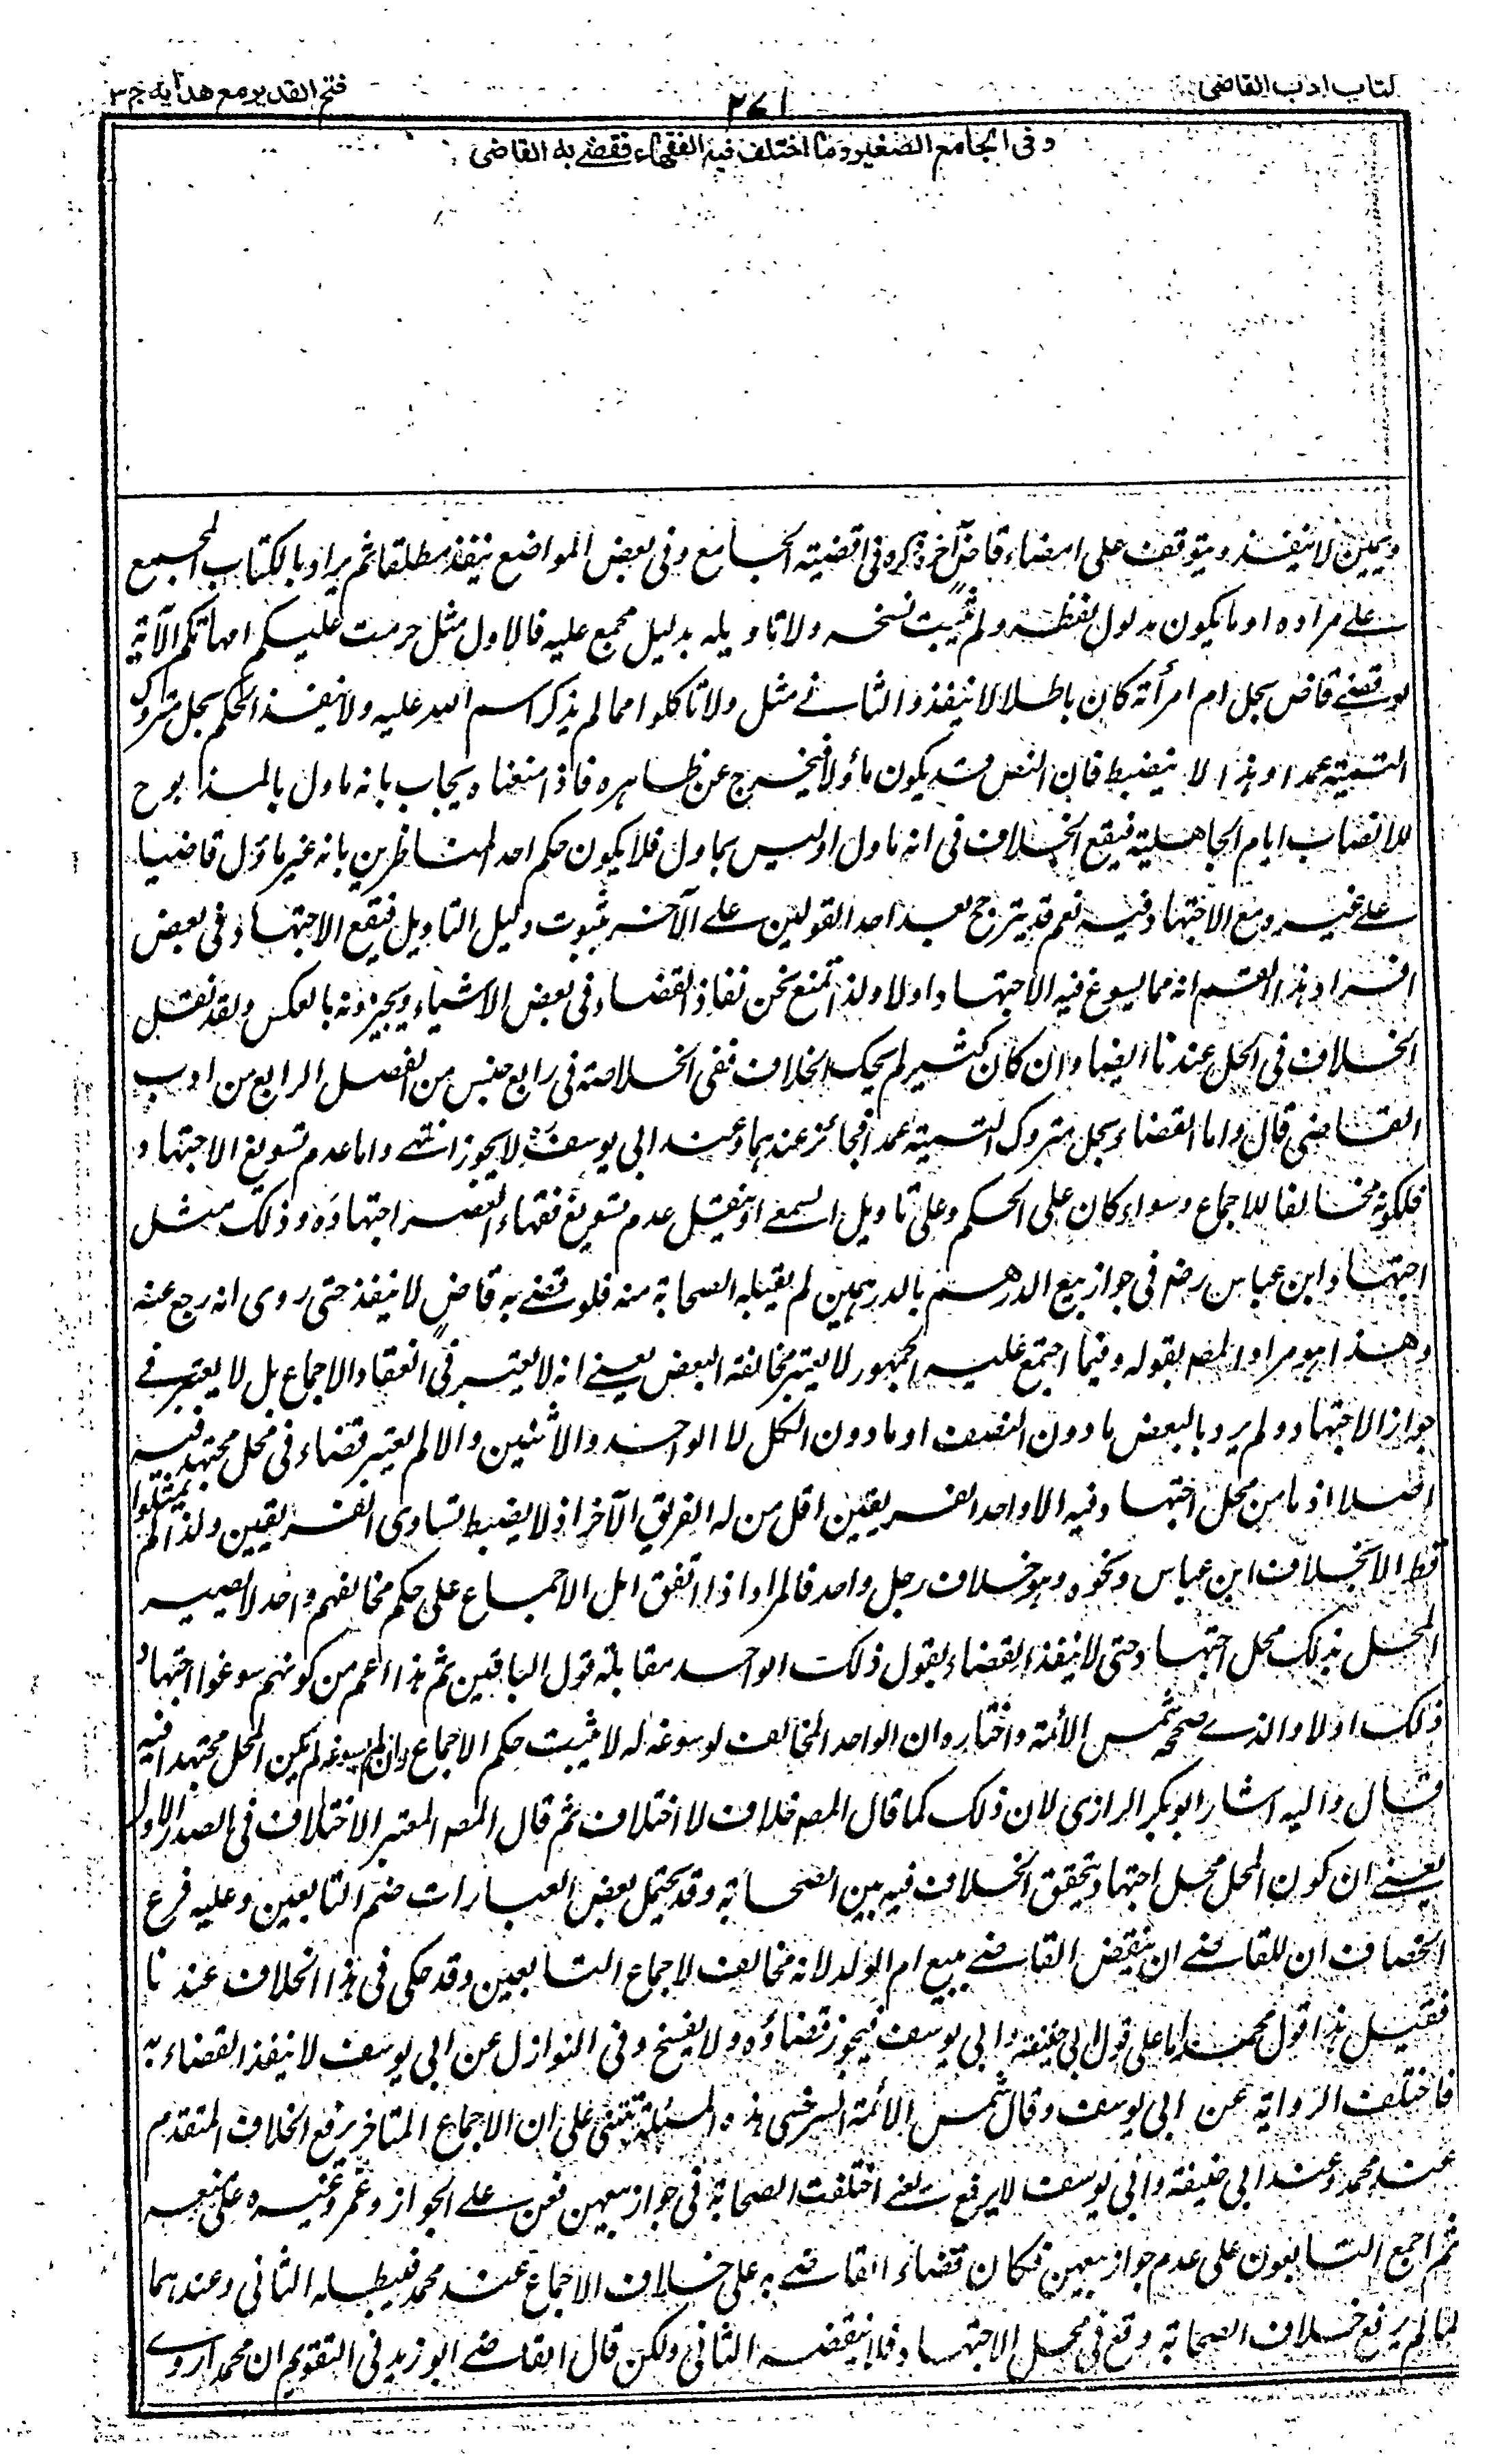 كتاب ادب القاضى
٢٧١
فتح القدير مع هدايه ج ٣
وفى الجامع الصغير وما اختلف فيه الفقهاء فقضے به القاضى
ويمين لا ينفذ ويتوقف على امضاء قاض آخر ذكره فى اقضيته الجامع وفى بعض المواضع ينفذ مطلقا ثم يراد بالكتاب المجمع
علے مراده او ما يكون مدلول لفظه ولم يثبت نسخه ولا تاويله بدليل مجمع عليه فالاول مثل حرمت عليكم امهاتكم الآية
لو قضے قاض بحل ام امرأته كان باطلا لا ينفذ والثانے مثل ولا تاكلوا مما لم يذكر اسم الله عليه ولا ينفذ الحكم بحل متروك
التسمية عمدا وهذا لا ينضبط فان النص قد يكون مأولا فيخرج عن ظاهره فاذا منعناه يجاب بانه ماول بالمذبوح
للانصاب ايام الجاهلية فيقع الخلاف فى انه ماول او ليس بماول فلا يكون حكم احد المتناظرين بانه غير ماؤل قاضيا
علے غيره ومع الاجتهاد فيه نعم قد يترجح بعد احد القولين علے الآخر بثبوت دليل التاويل فيقع الاجتهاد فى بعض
افراد هذا القسم انه مما يسوغ فيه الاجتهاد اولا ولذا نمنع نحن نفاذ القضاء فى بعض الاشياء ويجيزونه بالعكس ولقد نقل
الخلاف فى الحل عندنا ايضا وان كان كثير لم يحك الخلاف ففى الخلاصة فى رابع جنس من الفصل الرابع من ادب
القاضى قال واما القضاء بحل متروك التسمية عمدا فجائز عندهما وعند ابى يوسف لا يجوز انتهے واما عدم تسويغ الاجتهاد
فلكونه مخالفا للاجماع وسواء كان على الحكم وعلى تاويل السمعے او بنقل عدم تسويغ فقهاء العصر اجتهاده وذلك مثل
اجتهاد ابن عباس رضم فى جواز بيع الدرهم بالدرهمين لم يقبله الصحابة منه فلو قضے به قاض لا ينفذ حتى روى انه رجع عنه
وهذا هو مراد المصم بقوله وفيما اجتمع عليه الجمهور لا يعتبر مخالفة البعض يعنے انه لا يعتبر فى انعقاد الاجماع بل لا يعتبر فے
جواز الاجتهاد ولم يرد بالبعض ما دون النصف او ما دون الكل لا الواحد والاثنين والا لم يعتبر قضاء فى محل مجتهد فيه
اصلا اذ ما من محل اجتهاد فيه الا واحد الفريقين اقل من له الفريق الآخر اذ لا يضبط تساوى الفريقين ولذا لم يمثلوا
قط الا بخلاف ابن عباس ونحوه وهو خلاف رجل واحد فالمراد اذا اتفق اهل الاجماع على حكم مخالفهم واحد لا يصير
المحل بذلك محل اجتهاد حتى لا ينفذ القضاء بقول ذلك الواحد مقابلة قول الباقين ثم هذا اعم من كونهم سوغوا اجتهاد
ذلك اولا والذے صححه شمس الأئمة واختاره ان الواحد المخالف لو سوغ له لا يثبت حكم الاجماع وان لم يسوغ لم يكن المحل مجتهدا فيه
قال واليه اشار ابو بكر الرازى لان ذلك كما قال المصم خلاف لا اختلاف ثم قال المصم المعتبر الاختلاف فى الصدر الاول
يعنے ان كون المحل محل اجتهاد بتحقق الخلاف فيه بين الصحابة وقد يحتمل بعض العبارات ضم التابعين وعليه فرع
الخصاف ان للقاضے ان ينقض القاضے ببيع ام الولد لانه مخالف لاجماع التابعين وقد حكى فى هذا الخلاف عندنا
فقيل هذا قول محمد اما على قول ابى حنيفة وابى يوسف فيجوز قضاؤه ولا يفسخ وفى النوازل عن ابى يوسف لا ينفذ القضاء به
فاختلفت الرواية عن ابى يوسف وقال شمس الأئمة السرخسى هذه المسئلة تبتنى على ان الاجماع المتاخر يرفع الخلاف المتقدم
عند محمد وعند ابى حنيفة وابى يوسف لا يرفع يعنے اختلفت الصحابة فى جواز بيعهن فعن علے الجواز وعمر وغيره على منعه
ثم اجمع التابعون على عدم جواز بيعهن فكان قضاء القاضے به على خلاف الاجماع عند محمد فيبطله الثانى وعندهما
لما لم يرفع خلاف الصحابة وقع فى محل الاجتهاد فلا ينقضه الثانى ولكن قال القاضے ابو زيد فى التقويم ان محمدا روے